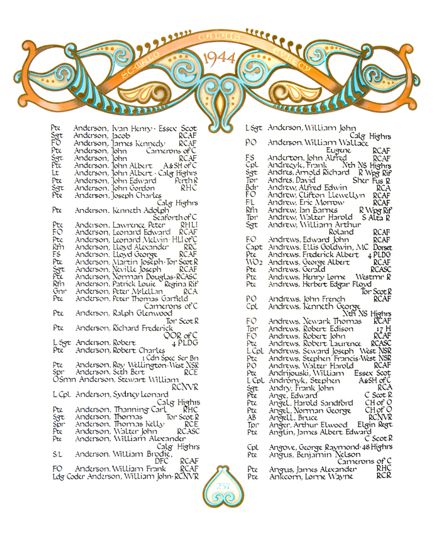 1944
Pte Anderson, Ivan Henry · Essex Scot
Sgt Anderson, Jacob RCAF
FO Anderson, James Kennedy RCAF
Pte Anderson, John Camerons of C
Sgt Anderson, John RCAF
Pte Anderson, John Albert A&SH of C
Lt Anderson, John Albert · Calg Highrs
Pte Anderson, John Edward Perth R
Sgt Anderson, John Gordon RHC
Pte Anderson, Joseph Charles
Calg Highrs
Pte Anderson, Kenneth Adolph
Seaforth of C
Pte Anderson, Lawrence Peter RHLI
FO Anderson, Leonard Edward RCAF
Pte Anderson, Leonard Melvin HLI of C
Rfn Anderson, Lloyd Alexander RRC
FS Anderson, Lloyd George RCAF
Pte Anderson, Martin Joseph · Tor Scot R
Sgt Anderson, Neville Joseph RCAF
Pte Anderson, Norman Douglas · RCASC
Rfn Anderson, Patrick Louie Regina Rif
Gnr Anderson, Peter McLellan RCA
Pte Anderson, Peter Thomas Garfield
Camerons of C
Pte Anderson, Ralph Glenwood
Tor Scot R
Pte Anderson, Richard Frederick
QOR of C
L Sgt Anderson, Robert 4 PLDG
Pte Anderson, Robert Charles
1 Cdn Spec Ser Bn
Pte Anderson, Ray Wellington · West NSR
Spr Anderson, Seth Bert RCE
OSmn Anderson, Stewart William
RCNVR
L Cpl Anderson, Sydney Leonard
Calg Highrs
Pte Anderson, Thanning Carl RHC
Sgt Anderson, Thomas Tor Scot R
Spr Anderson, Thomas Kelly RCE
Pte Anderson, Walter John RCASC
Pte Anderson, William Alexander
Calg Highrs
SL Anderson, William Brodie,
DFC RCAF
FO Anderson, William Frank RCAF
Ldg Coder Anderson, William John · RCNVR
L Sgt Anderson, William John
Calg Highrs
PO Anderson, William Wallace
Eugene RCAF
FS Anderton, John Alfred RCAF
Cpl Andreoyk, Frank Nth NS Highrs
Sgt Andres, Arnold Richard R Wpg Rif
Tpr Andres, David Sher Fus R
Bdr Andrew, Alfred Edwin RCA
FO Andrew, Clifton Llewellyn RCAF
FL Andrew, Eric Morrow RCAF
Rfn Andrew, Ian Barnes R Wpg Rif
Tpr Andrew, Walter Harold S Alta R
Sgt Andrew, William Arthur
Roland RCAF
FO Andrews, Edward John RCAF
Capt Andrews, Ellis Goldwin, MC Dorset
Pte Andrews, Frederick Albert 4 PLDG
WO2 Andrews, George Albert RCAF
Pte Andrews, Gerald RCASC
Pte Andrews, Henry Lorne Westmr R
Pte Andrews, Herbert Edgar Floyd
Tor Scot R
PO Andrews, John French RCAF
Cpl Andrews, Kenneth George
Nth NS Highrs
FO Andrews, Newark Thomas RCAF
Tpr Andrews, Robert Edison 17 H
FO Andrews, Robert John RCAF
Pte Andrews, Robert Laurence RCASC
L Cpl Andrews, Seward Joseph West NSR
Pte Andrews, Stephen Francis · West NSR
PO Andrews, Walter Harold RCAF
Pte Andrijouski, William Essex Scot
L Cpl Andronyk, Stephen A&SH of C
Sgt Andry, Frank John RCA
Pte Ange, Edward C Scot R
Pte Angel, Harold Sandford CH of O
Pte Angel, Norman George CH of O
AB Angell, Bruce RCNVR
Tpr Anger, Arthur Elwood Elgin Regt
Pte Anglin, James Albert Edward
C Scot R
Cpl Angrove, George Raymond · 48 Highrs
Pte Angus, Benjamin Nelson
Camerons of C
Pte Angus, James Alexander RHC
Pte Anicorn, Lorne Wayne RCR